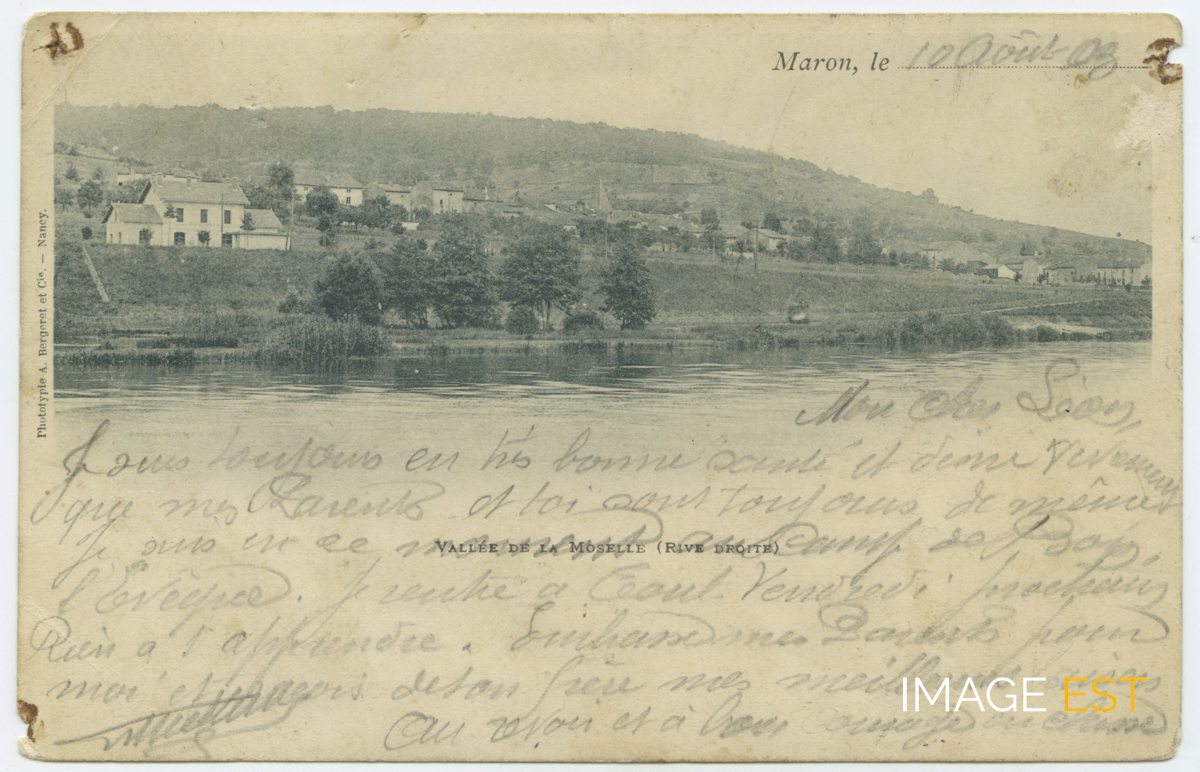 Maron, le 10 Août 03
Phototypie A. Bergeret et Cie. — Nancy.
Mon cher Léon,
Je suis toujours en très bonne santé et désire vivement
que mes Parents et toi sont toujours de même
Je suis en ce moment au Camp de Bois
VALLÉE DE LA MOSELLE (RIVE DROITE)
l'Évêque. Je rentre à Toul Vendredi prochain
Rien à t'apprendre. Embrasse mes Parents pour
moi et reçois de ton frère mes meilleurs
Au revoir et à bon courage en classe
IMAGE EST